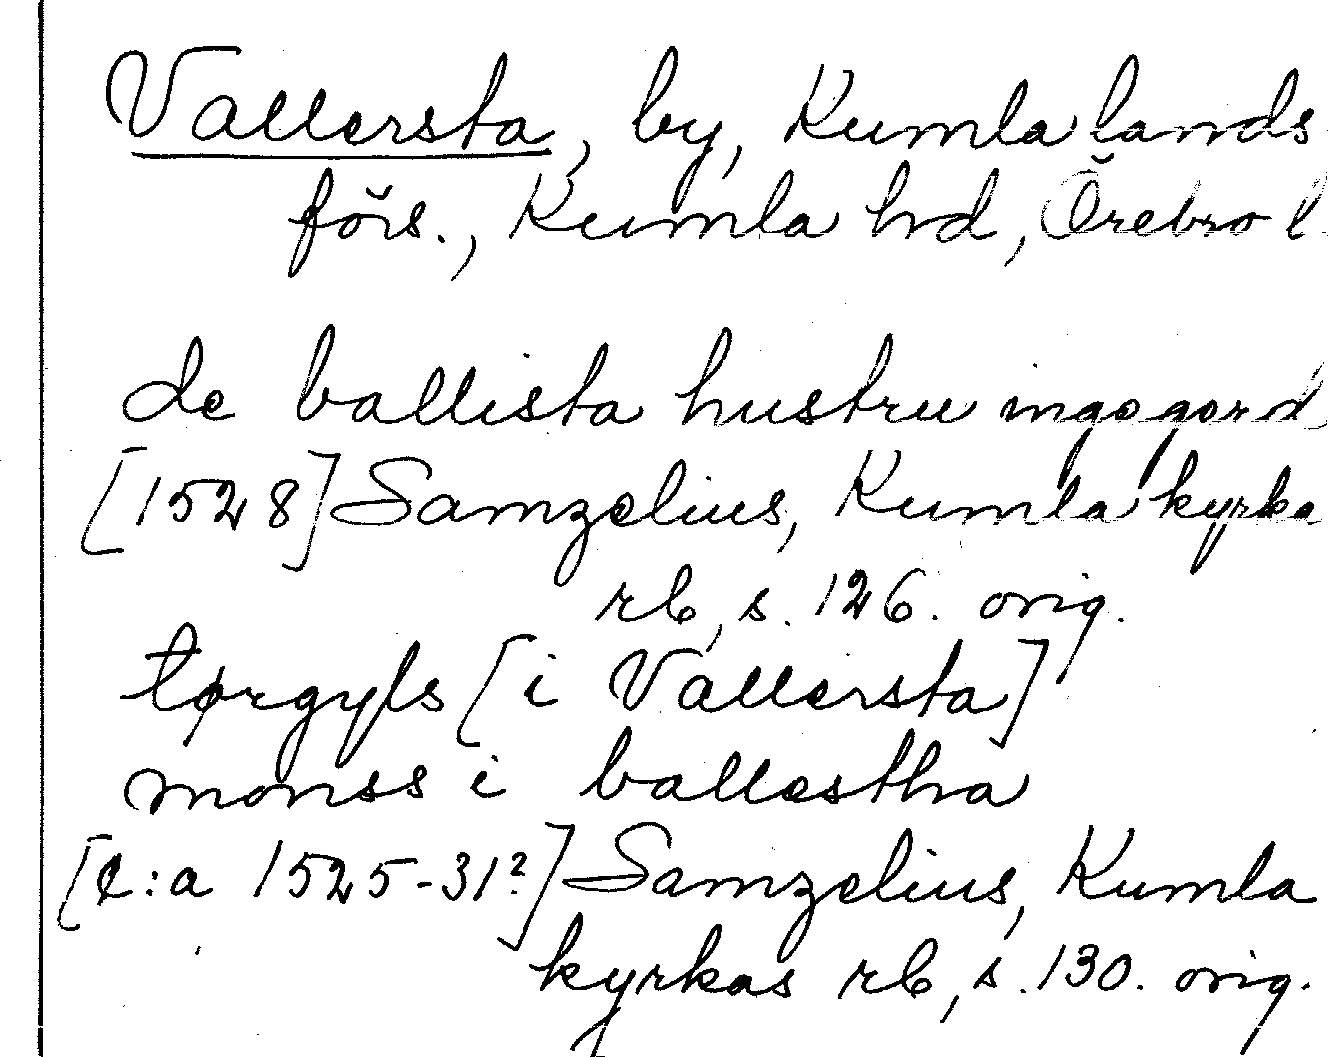 Vallersta, by, Kumla lands
förs., Kumla hd, Örebro l.
de ballista hustru ingegard,
[1528] Samzelius, Kumla kyrka
rb, s. 126. orig.
tørgyls [i Vallersta]
monss i ballestha
[c:a 1525-31?] Samzelius, Kumla
kyrkas rb, s. 130. orig.